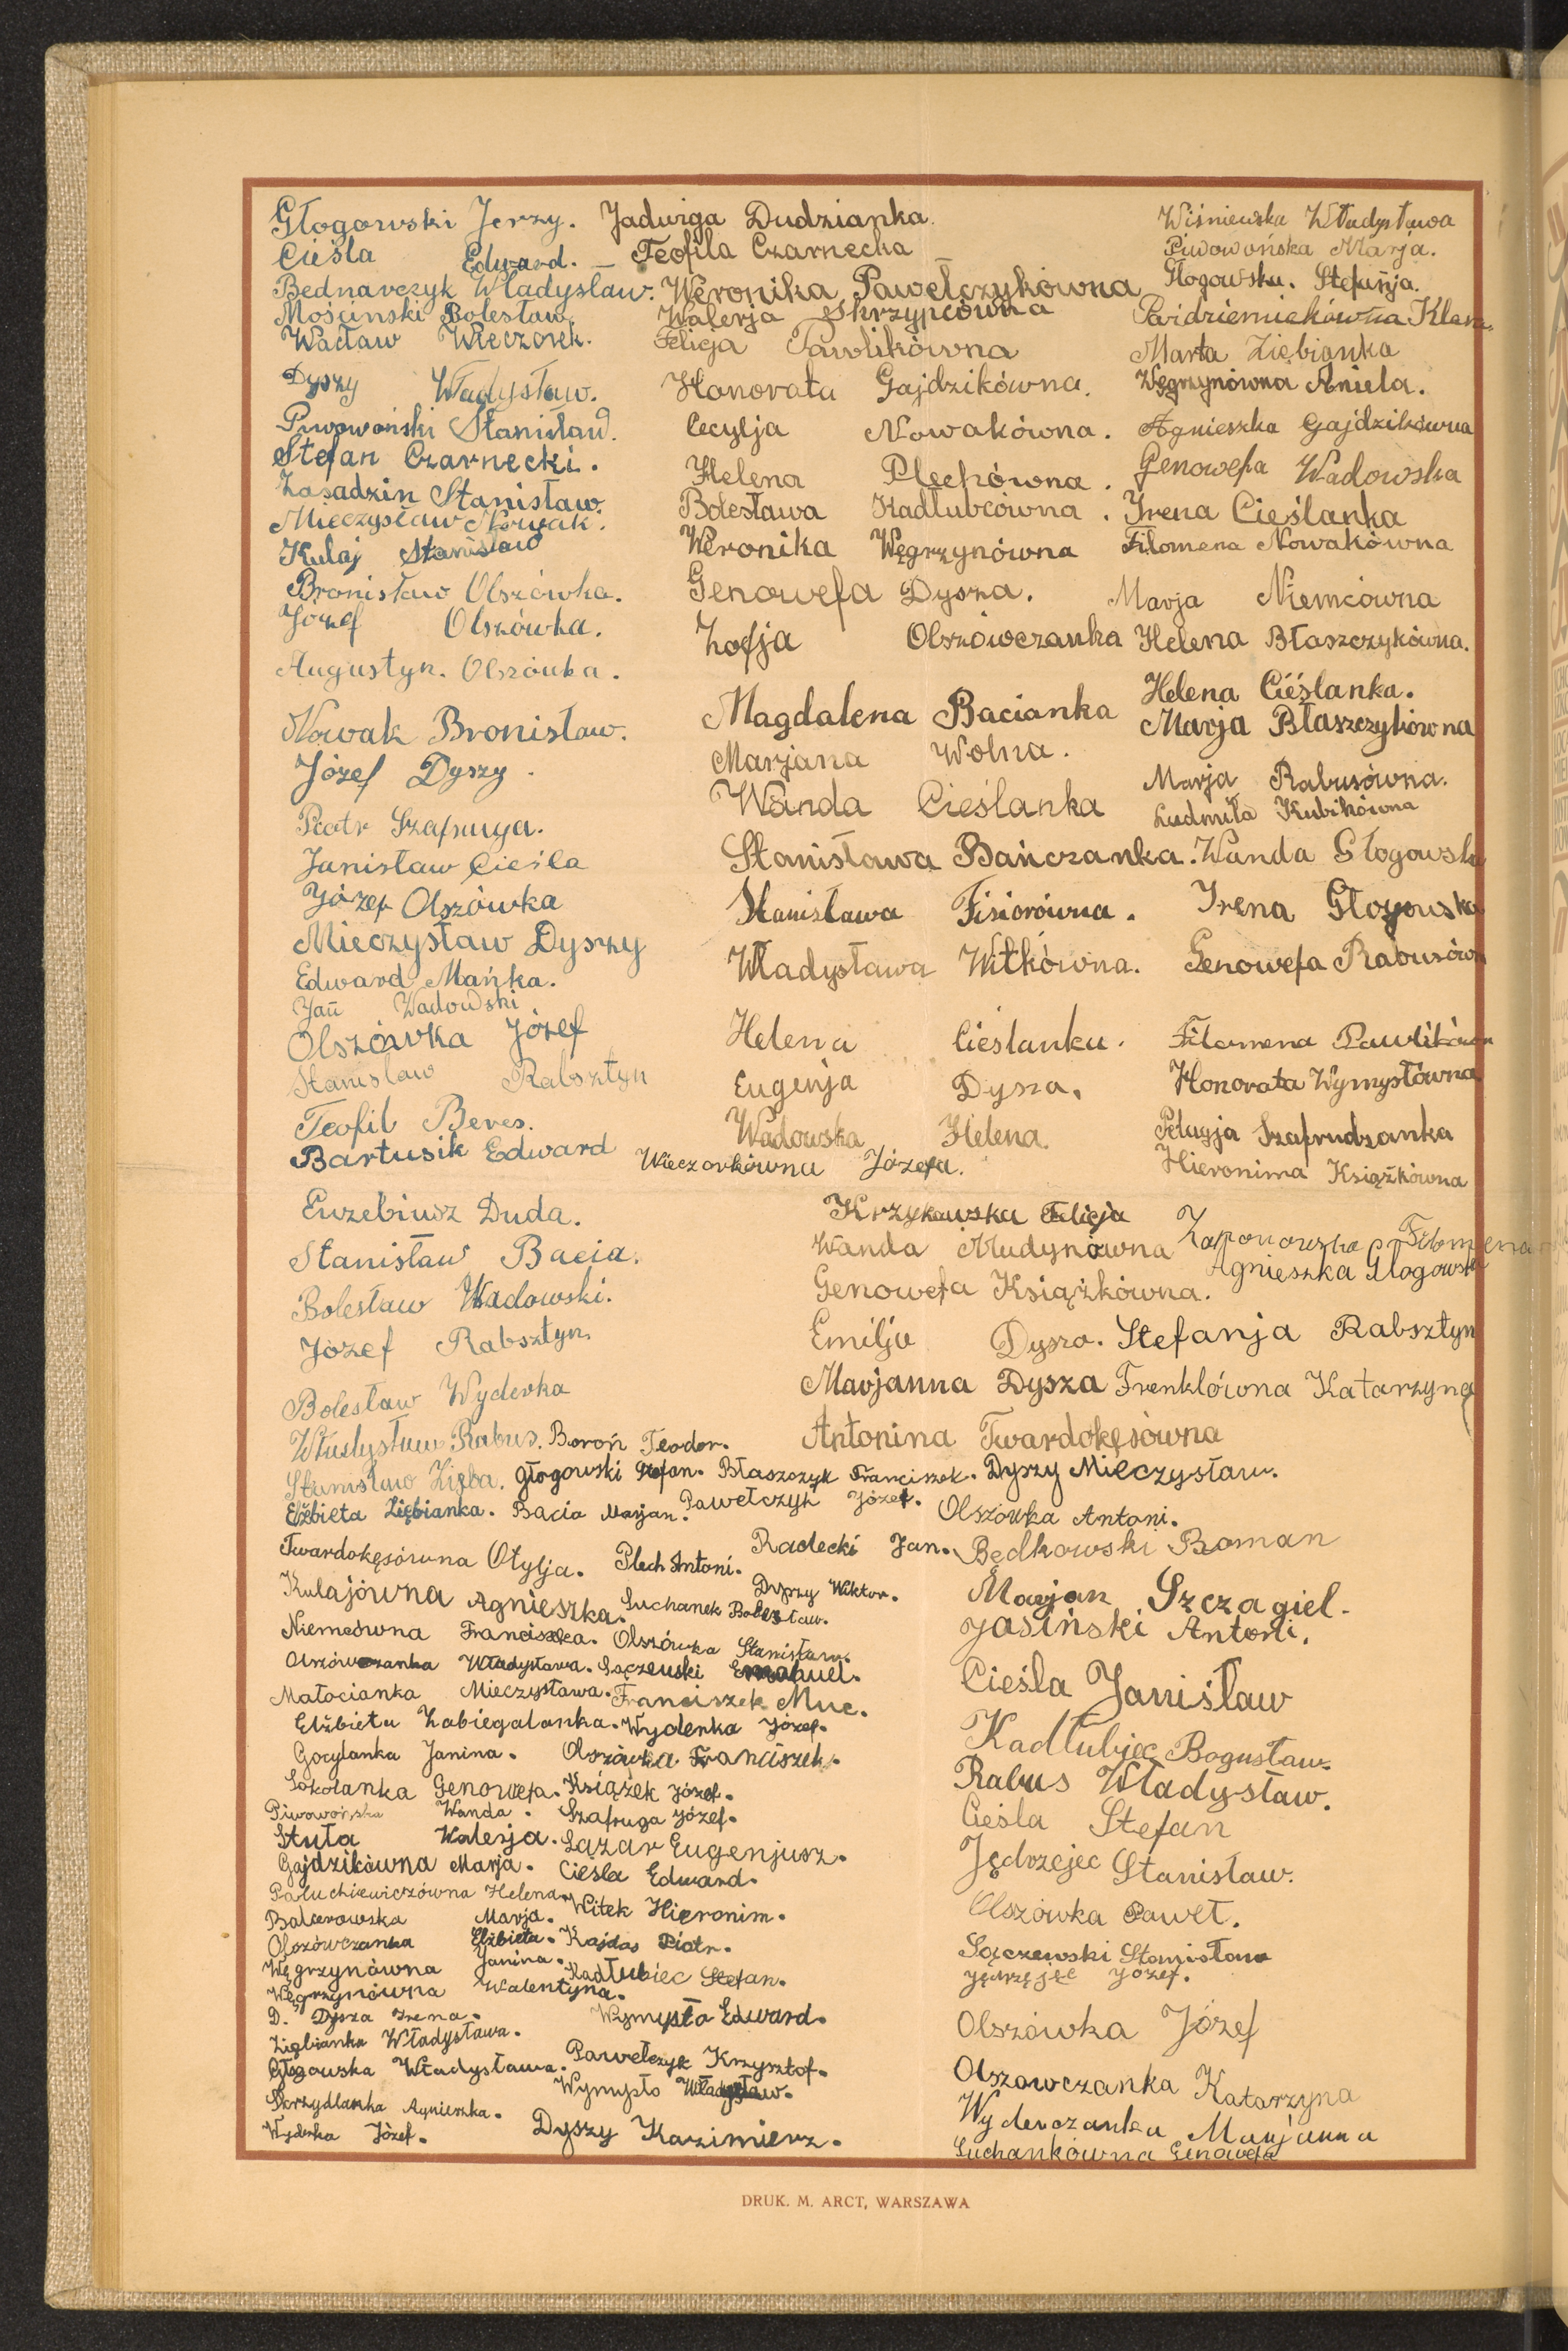 Głogowski Jerzy.
Cieśla Edward.
Bednarczyk Władysław.
Mosiński Bolesław.
Wacław Wieczorek.
Dyszy Władysław.
Piwowoński Stanisław.
Stefan Czarnecki.
Zasadzin Stanisław.
Mieczysław Nowak.
Kulaj Stanisław
Bronisław Olszówka.
Józef Olszówka.
Augustyn. Olszówka.
Nowak Bronisław.
Józef Dyszy.
Piotr Szafruga.
Janisław Cieśla
Józef Olszówka
Mieczysław Dyszy
Edward Mańka.
Jan Wadowski
Olszówka Józef
Stanisław Rabsztyn
Teofil Beres.
Bartusik Edward
Euzebiusz Duda.
Stanisław Bacia.
Bolesław Wadowski.
Józef Rabsztyn.
Bolesław Wyderka
Władysław Rabus.
Stanisław Zięba.
Jadwiga Dudzianka.
Teofila Czarnecka
Weronika Pawełczykówna
Walerja Skrzypcówna
Felicja Pawlikówna
Honorata Gajdzikówna.
Cecylja Nowakówna.
Helena Plechówna.
Bolesława Kadłubcówna.
Weronika Węgrzynówna
Genowefa Dysza.
Zofja Olszówczanka
Magdalena Bacianka
Marjana Wolna.
Wanda Cieślanka
Stanisława Bańczanka.
Stanisława Fisiorówna.
Władysława Witkówna.
Helena Cieślanka.
Eugenja Dysza.
Wadowska Helena.
Wieczorkówna Józefa.
Krzykawska Felicja
Wanda Mudynówna
Genowefa Książkówna.
Emilja Dysza.
Marjanna Dysza
Antonina Twardokęsówna
Wiśniewska Władysława
Piwowońska Marja.
Głogowska. Stefanja.
Klara
Marta Ziębianka
Węgrzynówna Aniela.
Agnieszka Gajdzikówna
Genowefa Wadowska
Irena Cieślanka
Filomena Nowakówna
Marja Niemcówna
Helena Błaszczykówna.
Helena Cieślanka.
Marja Błaszczykówna
Marja Rabusówna.
Ludmiła Kubikówna
Wanda Głogowska
Irena Głogowska
Genowefa Rabusówn
Filomena Pawlikówn
Honorata Wymysłówna
Pelagja Szafrudzanka
Hieronima Książkówna
Filomena
Agnieszka Głogowska
Stefanja Rabsztyn
Frenklówna Katarzyna
Boroń Teodor.
Głogowski Stefan. Błaszczyk Franciszek. Dyszy Mieczysław.
Elżbieta Ziębianka. Bacia Marjan. Pawełczyk Józef. Olszówka Antoni.
Twardokęsówna Otylja. Plech Antoni. Radecki Jan. Będkowski Roman
Kulajówna Agnieszka. Suchanek Bolesław. Dyszy Wiktor.
Niemcówna Franciszka. Olszówka Stanisław.
Olszówczanka Władysława. Sączewski Emanuel.
Małocianka Mieczysława. Franciszek Muc.
Elżbieta Zabiegalanka. Wyderka Józef.
Gocylanka Janina. Olszówka Franciszek.
Sokolanka Genowefa. Książek Józef.
Piwowońska Wanda. Szafruga Józef.
Stuła Walerja. Łazar Eugenjusz.
Gajdzikówna Marja. Cieśla Edward.
Paluchiewiczówna Helena. Witek Hieronim.
Balcerowska Marja.
Olszówczanka Elżbieta. Kajdas Piotr.
Węgrzynówna Janina. Kadłubiec Stefan.
Węgrzynówna Walentyna.
D. Dysza Irena. Wymysło Edward.
Ziębianka Władysława.
Głogowska Władysława. Pawełczyk Krzysztof.
Skrzydlanka Agnieszka. Wymysło Władysław.
Wyderka Józef. Dyszy Kazimierz.
Marjan Szczagiel.
Jasiński Antoni.
Cieśla Janisław
Kadłubiec Bogusław.
Rabus Władysław.
Cieśla Stefan
Jędrzejec Stanisław.
Olszówka Paweł.
Sączewski Stanisław
Jędrzejec Józef.
Olszówka Józef
Olszowczanka Katarzyna
Wyderczanka Marjanna
Suchankówna Genowefa
DRUK. M. ARCT, WARSZAWA